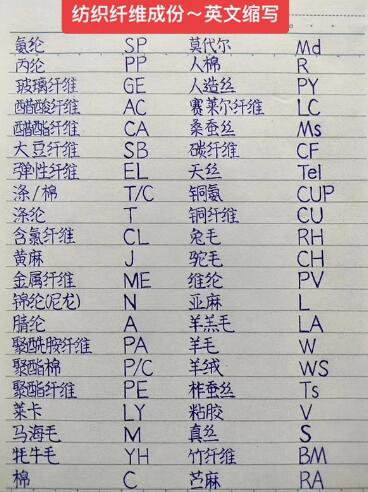 纺织纤维成份～英文缩写
氨纶 SP 莫代尔 Md
丙纶 PP 人棉 R
玻璃纤维 GE 人造丝 PY
醋酸纤维 AC 赛莱尔纤维 LC
醋酯纤维 CA 桑蚕丝 Ms
大豆纤维 SB 碳纤维 CF
弹性纤维 EL 天丝 Tel
涤/棉 T/C 铜氨 CUP
涤纶 T 铜纤维 CU
含氯纤维 CL 兔毛 RH
黄麻 J 驼毛 CH
金属纤维 ME 维纶 PV
锦纶(尼龙) N 亚麻 L
腈纶 A 羊羔毛 LA
聚酰胺纤维 PA 羊毛 W
聚酯棉 P/C 羊绒 WS
聚酯纤维 PE 柞蚕丝 Ts
莱卡 LY 粘胶 V
马海毛 M 真丝 S
牦牛毛 YH 竹纤维 BM
棉 C 苎麻 RA